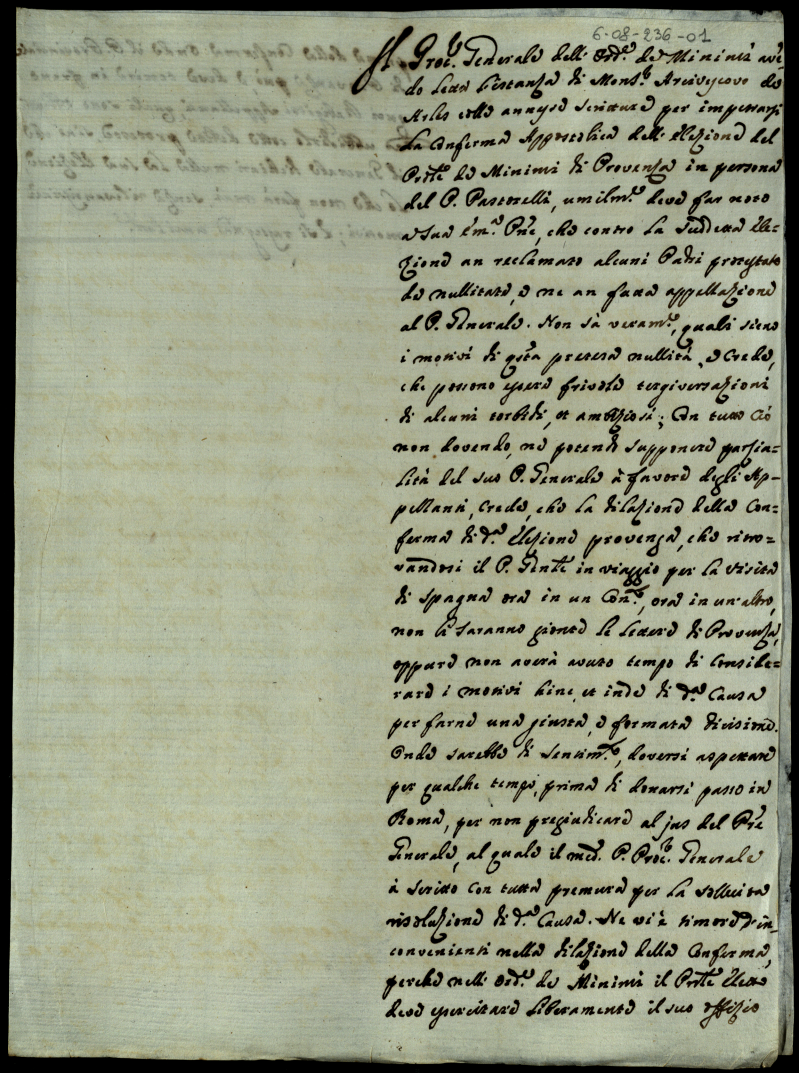 6-08-236-01
Il Proc.r Generale dell' Ord.e de Minimi aven-
do letta l'istanza di Mons.r Arcivescovo de
Arles colle annesse scritture per impetrarsi
la conferma Appostolica dell' elezione del
Pnle de Minimi di Provenza in persona
del P. Pastorelli, umilm.e deve far noto
a Sua Em.a Pne, che contro la suddetta ele-
zione an reclamato alcuni Padri protestato
de nullitate, e ne an fatta appellazione
al P. Generale. Non sà veram.e, quali sieno
i motivi di qsta pretesa nullità, e crede,
che possono essere frivole tergiversazioni
di alcuni torbidi, et ambiziosi; Con tutto ciò
non dovendo, ne potendo supponere parzia-
lità del suo P. Generale à favore degli Ap-
pellanti, crede, che la dilazione della con-
ferma di d.a elezione provenga, che ritro-
vandosi il P. Gnle in viaggio per la visita
di Spagna ora in un Con.to, ora in un altro,
non li saranno gionte le lettere di Provenza,
oppure non averà avuto tempo di conside-
rare i motivi hinc, et inde di d.a Causa
per farne una giusta, e formata divisione.
Onde sarebbe di sentim.to, doversi aspettare
per qualche tempo, prima di donarsi passo in
Roma, per non pregiudicare al jus del Pre
Generale, al quale il med. P. Proc.r Generale
à scritto con tutta premura per la sollecita
risoluzione di d.a Causa. Ne vi è timore d'in-
convenienti nella dilazione della conferma,
perche nell' Ord.e de Minimi il Pnle eletto
deve esercitare liberamente il suo offizio